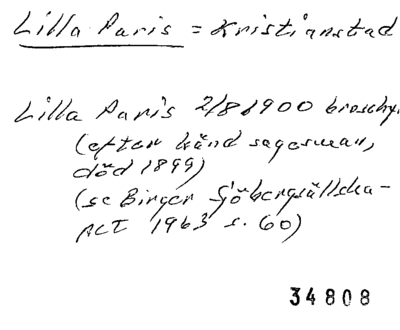 Lilla Paris = Kristianstad
Lilla Paris 2/8 1900 broschyr.
(efter känd sagesman,
död 1899)
(se Birger Sjöbergsällska-
pet 1963 s. 60)
34808